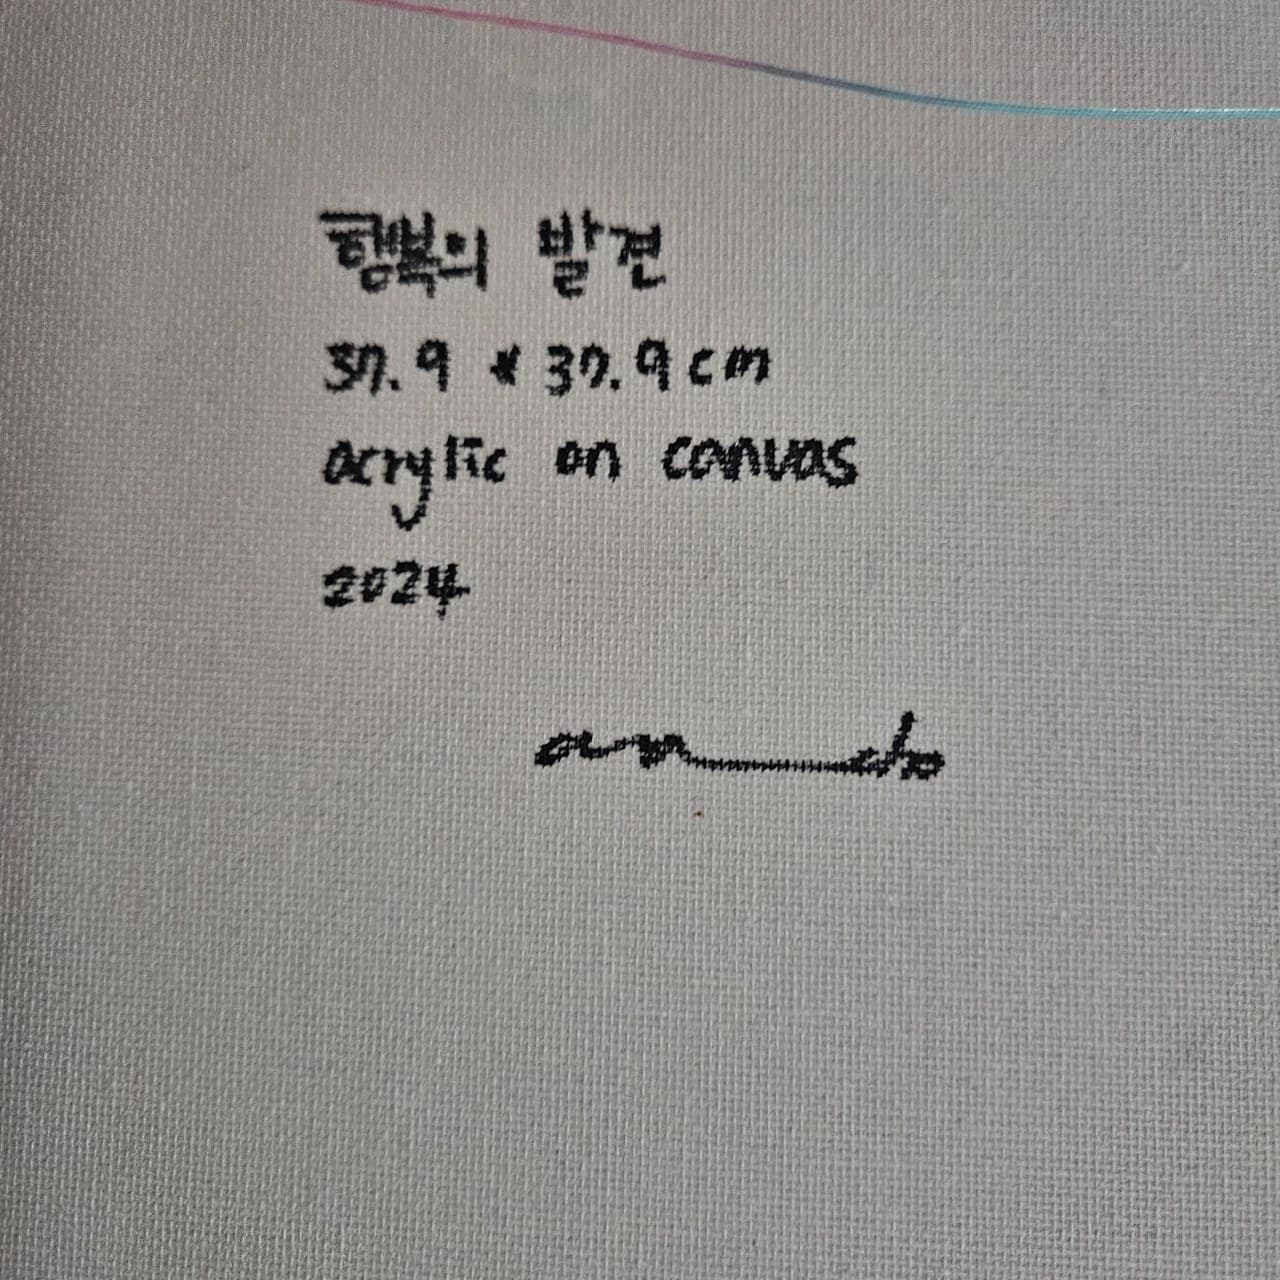 행복의 발견
37.9 * 37.9 cm
acrylic on canvas
2024